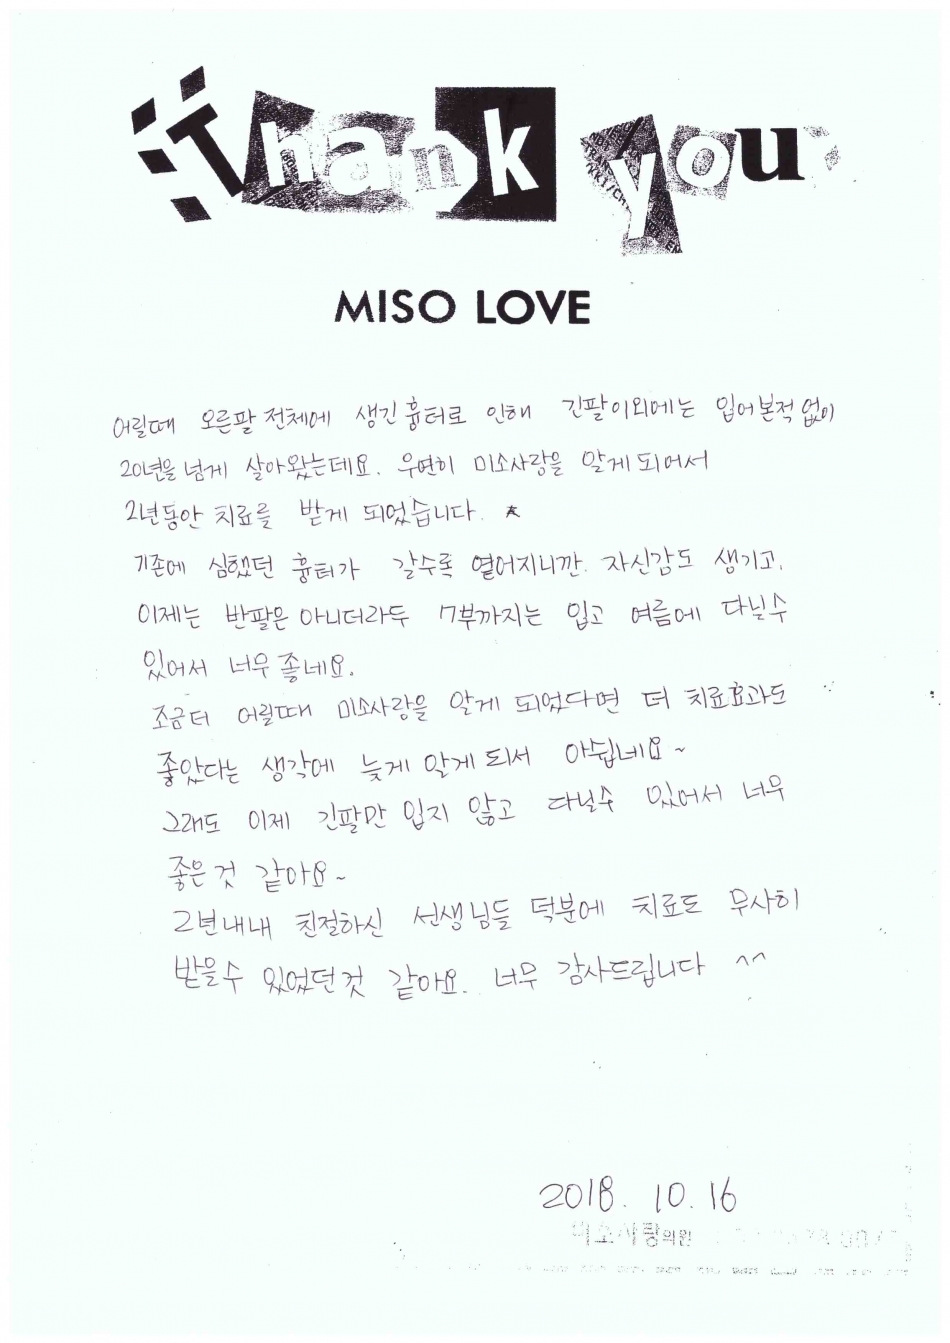 Thank you
MISO LOVE
어릴때 오른팔 전체에 생긴 흉터로 인해 긴팔이외에는 입어본적 없이
20년을 넘게 살아왔는데요. 우연히 미소사랑을 알게 되어서
2년동안 치료를 받게 되었습니다.
기존에 심했던 흉터가 갈수록 옅어지니깐. 자신감도 생기고.
이제는 반팔은 아니더라두 7부까지는 입고 여름에 다닐수
있어서 너우 좋네요.
조금더 어릴때 미소사랑을 알게 되었다면 더 치료효과도
좋았다는 생각에 늦게 알게되서 아쉽네요~
그래도 이제 긴팔만 입지 않고 다닐수 있어서 너우
좋은것 같아요~
2년내내 친절하신 선생님들 덕분에 치료도 무사히
받을수 있었던것 같아요. 너무 감사드립니다 ^^
2018. 10. 16
미소사랑의원